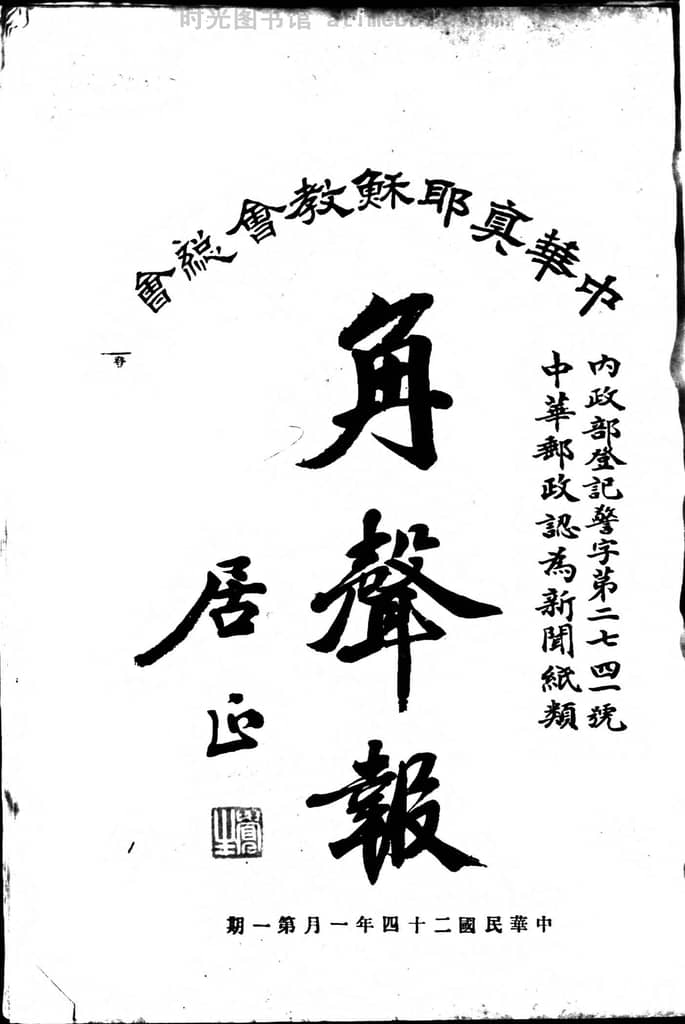 时光图书馆
中華真耶穌教會總會
內政部登記警字第二七四一號
中華郵政認為新聞紙類
角聲報
居正
中華民國二十四年一月第一期